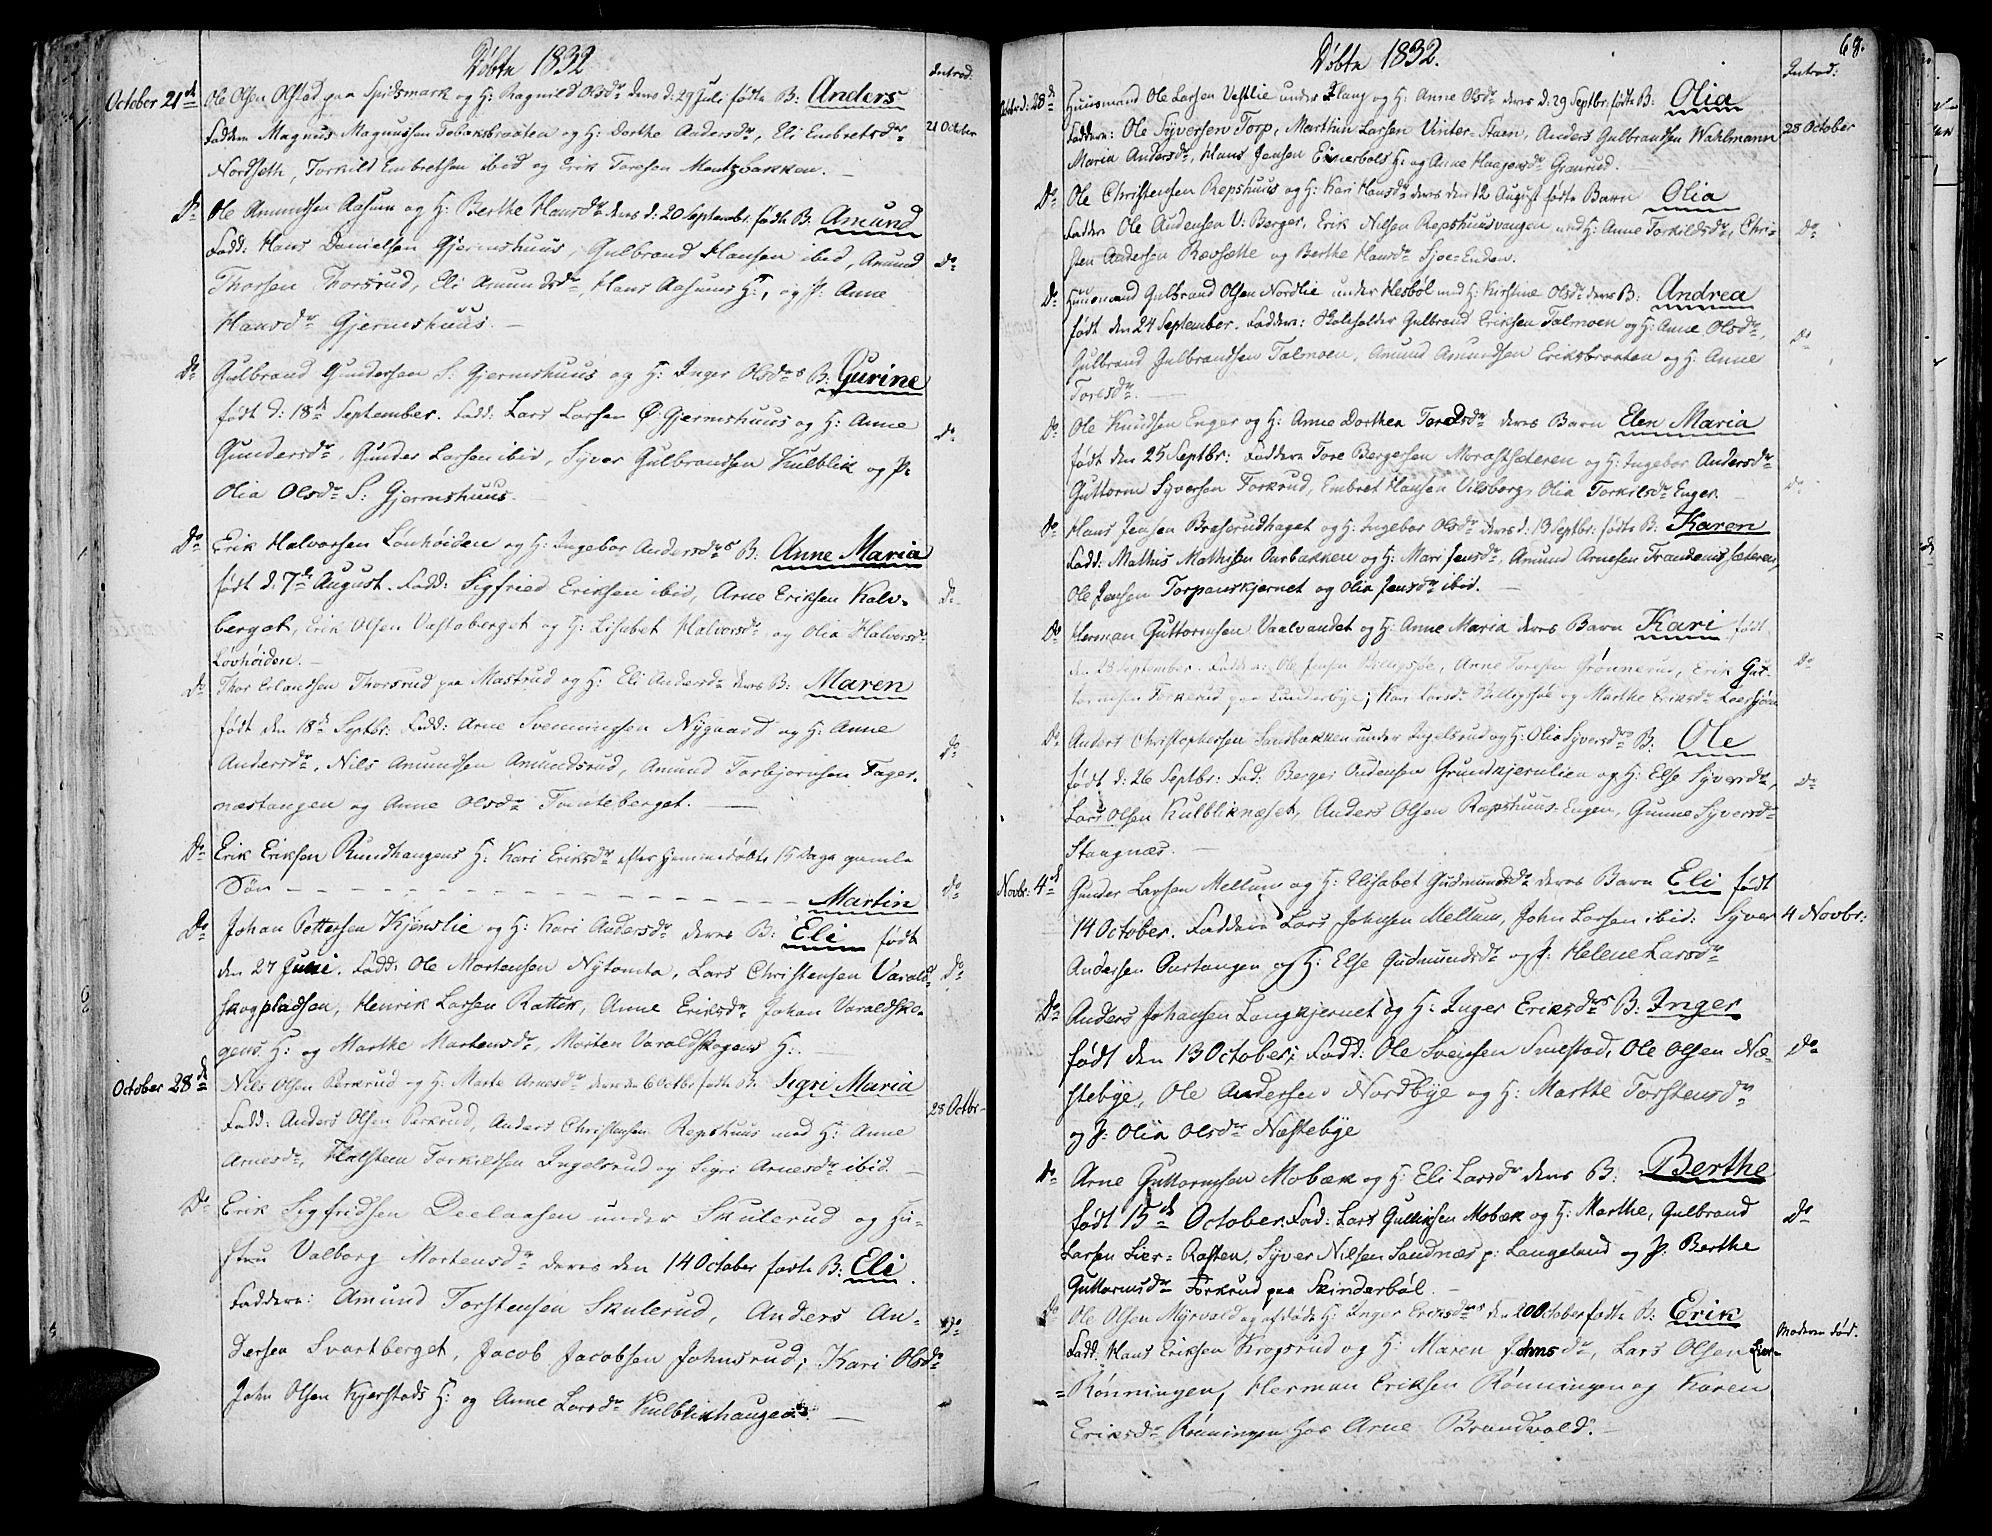 Døbte 1832
Introd:
October 21de Ole Olsen Ofstad paa Spidsmark og H: Ragnild Olsdr deres d: 29 Juli fødte B: Anders
Faddere Magnus Magnussen Tobaksbraaten og H: Dorthe Andersdr, Eli Embretsdr 21 Octobr
Nordseth, Torkild Embretsen ibid og Erik Toresen Mentzbakken.
Do Ole Amundsen Aasum og H: Berthe Hansdr deres d: 20 Septembr. fødte B. Amund
Fadd: Hans Danielsen Gjermshuus, Gulbrand Hansen ibid, Amund Do
Thorsen Thorsrud, Eli Amundsdr, Hans Aasums H:, og P: Anne
Hansdr Gjermshuus.
Do Gulbrand Gundersen S: Gjermshuus og H: Inger Olsdrs B: Gurine
født d: 18de September. Fadd: Lars Larsen Ø: Gjermshuus og H: Anne
Gundersdr, Gunder Larsen ibid, Syver Gulbrandsen Kulblik og P: Do
Olia Olsdr S: Gjermshuus.
Do Erik Halvorsen Lovhøiden og H: Ingebor Andersdrs B: Anne Maria
født d: 7de August. Fadd: Sigfried Eriksen ibid, Arne Eriksen Kalv- Do
berget, Erik Olsen Vestaberget og H: Lisabet Halvorsdr og Olia Halvorsdr
Lovhøiden.
Do Thor Erlandsen Thorsrud paa Mastrud og H: Eli Andersdr deres B: Maren
født den 18de Septbr: Fadd: Arne Svenningsen Nygaard og H: Anne
Andersdr, Nils Amundsen Amundsrud, Amund Torbjørnsen Fager- Do
næstangen og Anne Olsdr Tomteberget.
Do Erik Eriksen Rundhaugens H: Kari Eriksdr efter hjemmedøbte 15 Dage gamle
Søn Martin Do
Do Johan Pettersen Kjenslie og H: Kari Andersdr deres B: Eli født
den 27 Juni. Fadd: Ole Mortensen Nytomta, Lars Christensen Varald- Do
skogpladsen, Henrik Larsen Rattik, Anne Eriksdr Johan Varaldsko-
gens H: og Marthe Mortensdr, Morten Varaldskogens H:.
October 28de Nils Olsen Parkrud og H: Marte Arnesdr deres den 6 Octbr fødte B: Sigri Maria
Fadd: Anders Olsen Parkrud, Anders Christensen Repshuus med H: Anne 28 Octbr
Arnesdr, Halsten Torkildsen Ingelsrud og Sigri Arnesdr ibid.
Do Erik Sigfridsen Deelaasen under Skulerud og Hu-
stru Valborg Mortensdr deres den 14 October fødte B: Eli.
Faddere: Amund Torstensen Skulerud, Anders An-
dersen Svartberget, Jacob Jacobsen Johnsrud, Kari Olsdr Do
John Olsen Kjerstads H: og Anne Larsdr Kulblikhaugen.
Døbte 1832.
68.
Introd:
Octobr: 28de Huusmand Ole Larsen Vestlie under Flang og H: Anne Olsdr deres d: 29 Septbr: fødte B: Olia
Faddere: Ole Syversen Torp, Marthin Larsen Vinter-Staen, Anders Gulbrandsen Wahlmann 28 October
Maria Andersdr, Hans Jensen Einerbols H: og Anne Haagensdr Granrud.
Do Ole Christensen Repshuus og H: Kari Hansdr deres den 12 August fødte Barn Olia
Faddere Ole Audensen V: Berger, Erik Nilsen Repshuusvangen med H: Anne Torkildsdr, Chri- Do
sten Andersen Rævsætte og Berthe Hansdr Sjoe-Enden.
Do Huusmand Gulbrand Olsen Nordlie under Hesbøl med H: Kirstine Olsdr deres B: Andrea
født den 24 September. Faddere: Skoleholder Gulbrand Eriksen Talmoen og H: Anne Olsdr,
Gulbrand Gulbrandsen Talmoen, Amund Amundsen Eriksbraaten og H: Anne Do
Toresdr.
Do Ole Knudsen Enger og H: Anne Dorthea Toresdr deres Barn Elen Maria
født den 25 Septbr: Faddere Tore Bergersen Morastsæteren og H: Ingebor Andersdr
Guttorm Syversen Forkrud, Embret Hansen Vilsberg, Olia Torkilsdr Enger. Do
Do Hans Jensen Braserudhaget og H: Ingebor Olsdr deres d: 13 Septbr: fødte B: Karen
Fadd: Mathis Mathisen Aurbakken og H: Mari Jensdr, Amund Arnesen Trandemsæteren,
Ole Jensen Torpanskjernet og Olia Jensdr ibid.
Do Herman Guttormsen Vaalvandet og H: Anne Maria deres Barn Kari født
den 28 September. Faddere: Ole Jensen Bellingsjøe, Anne Toresen Grønnerud, Erik Gut- Do
tormsen Forkerud paa Sunderbye, Kari Larsdr og Marthe Eriksdr
Do Anders Christophersen Sandbakken under Ingelsrud og H: Olia Syversdrs B: Ole
født d: 26 Septbr: Fad: Berger Audensen Grundkjernlien og H: Else Syversdr, Do
Lars Olsen Kulbliknæset, Anders Olsen Repshuus-Engen, Gunne Syversdr
Stangnæs.
Novbr: 4de Gunder Larsen Mellum og H: Elisabet Gudmundsdr deres Barn Eli født
14 October. Faddere Lars Johnsen Mellum, John Larsen ibid. Syver 4 Novbr:
Andersen Partangen og H: Else Gudmundsdr og P: Helene Larsdr
Do Anders Johansen Langkjernet og H: Inger Eriksdrs B: Inger
født den 13 October; Fadd: Ole Svensen Smestad, Ole Olsen Næ- Do
stebye, Ole Andersen Nordbye og H: Marthe Torstensdr
og P: Olia Olsdr Næstebye
Do Arne Guttormsen Mobæk og H: Eli Larsdr deres B: Berthe
født 15de October. Fad: Lars Gulliksen Mobæk og H: Marthe, Gulbrand Do
Larsen Lier-Rasten, Syver Nilsen Sandnæs p: Langeland og P: Berthe
Guttormsdr Forkrud paa Skinderbøl.
Do Ole Olsen Myrvold og afdøde H: Inger Eriksdrs den 20 October fødte B: Erik
Fadd. Hans Eriksen Krogsrud og H: Maren Johnsdr, Lars Olsen Moderen død.
Rønningen, Herman Eriksen Rønningen og Karen
Eriksdr Rønningen hos Arne Brandvold.